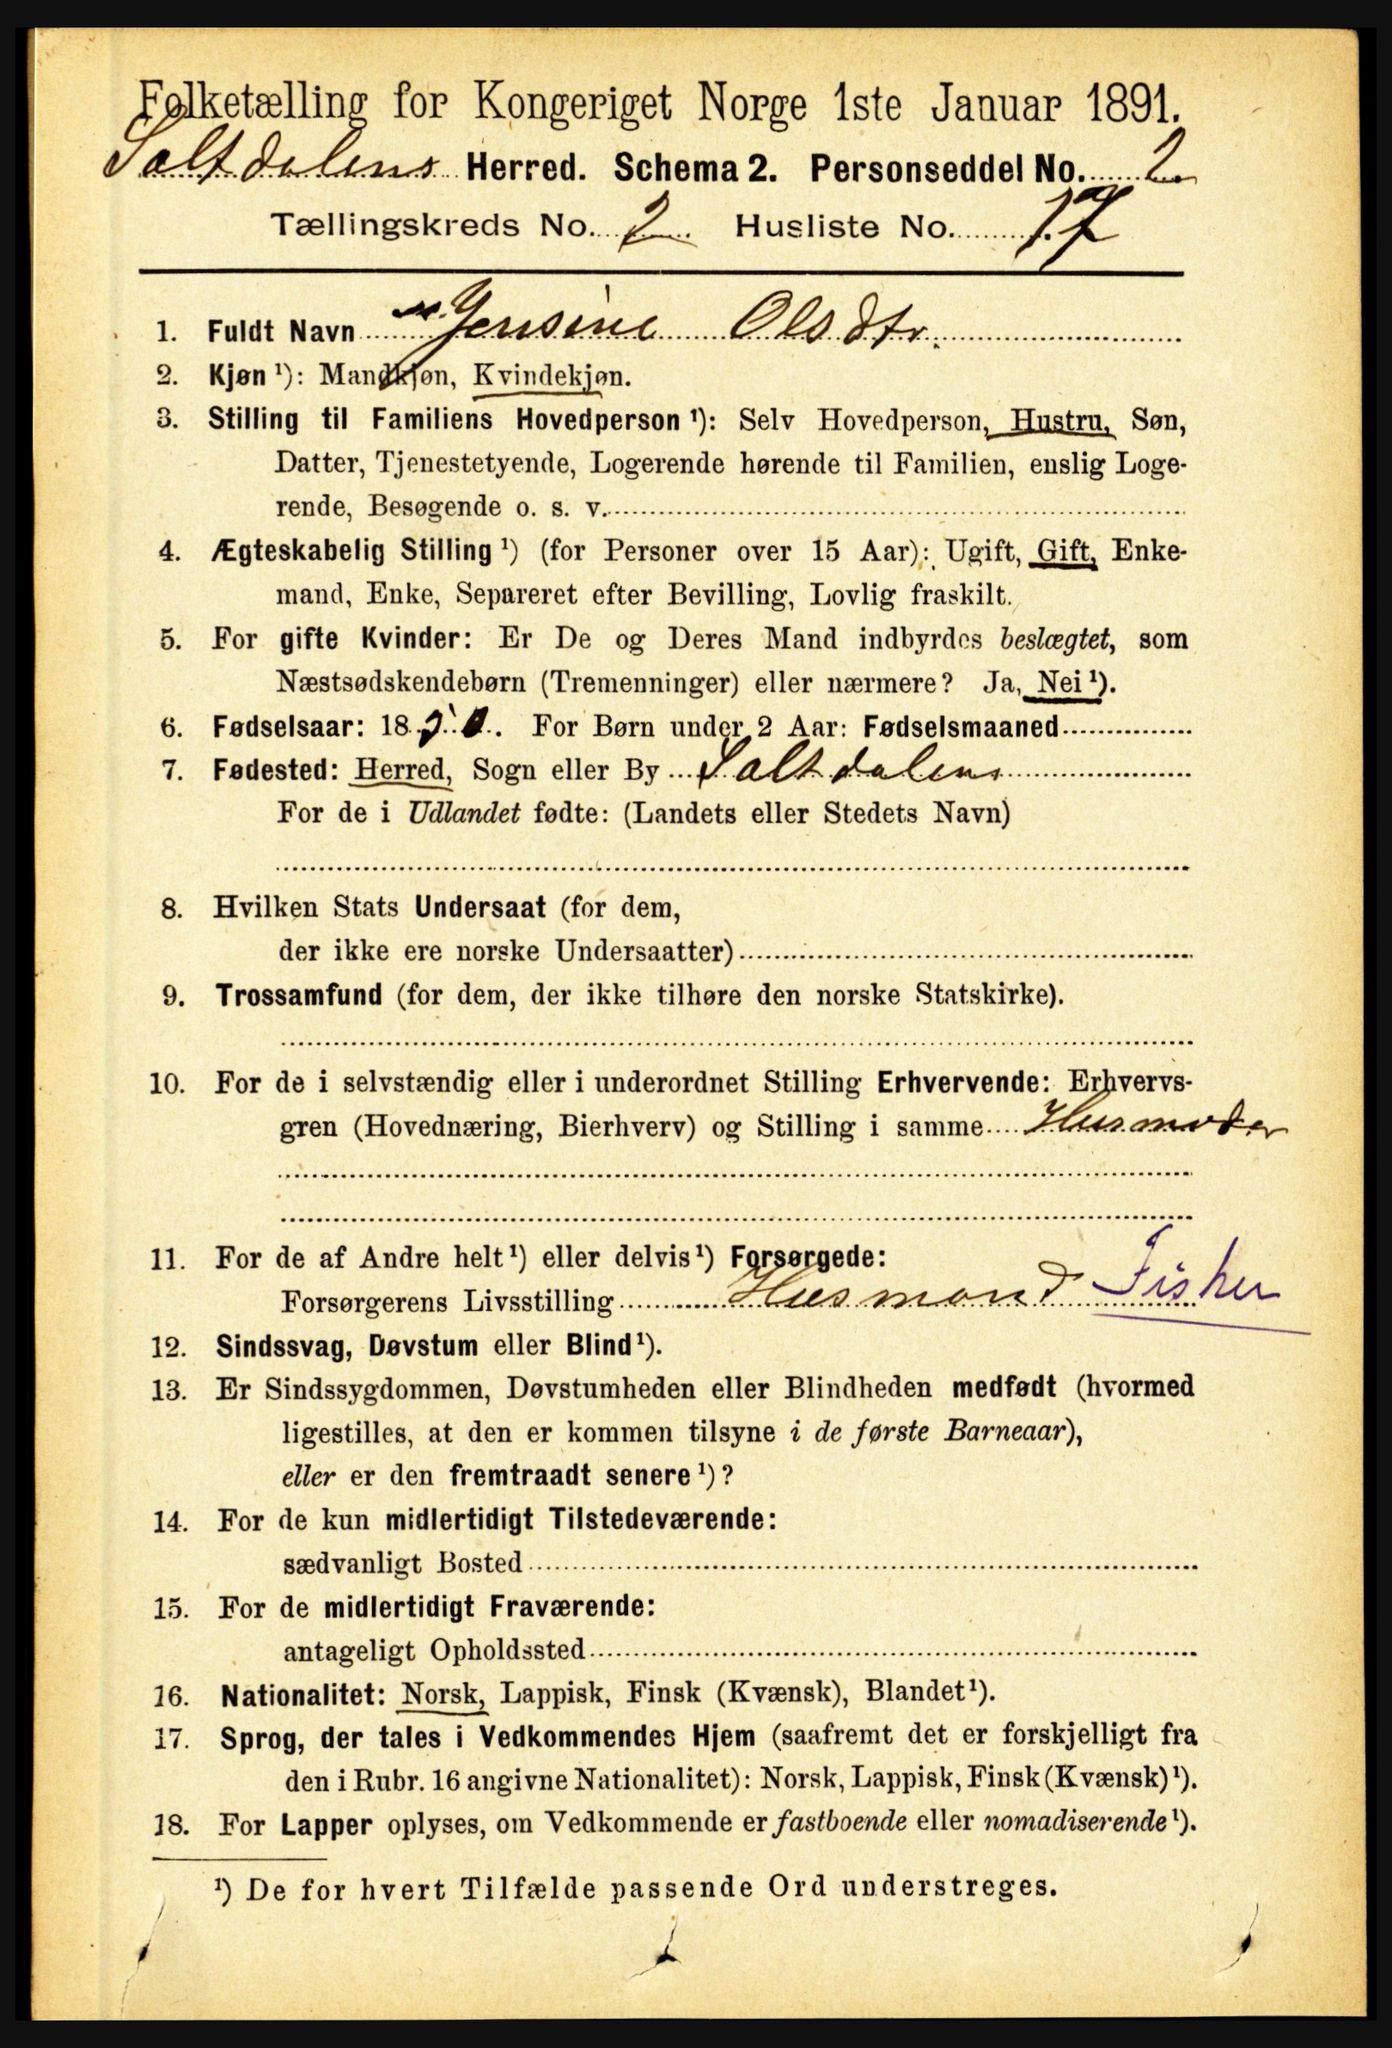 Folketælling for Kongeriget Norge 1ste Januar 1891.
Saltdalens Herred. Schema 2. Personseddel No. 2.
Tællingskreds No. 2. Husliste No. 17
1. Fuldt Navn Jensine Olsdtr.
2. Kjøn ¹): Mandkjøn, Kvindekjøn.
3. Stilling til Familiens Hovedperson ¹): Selv Hovedperson, Hustru, Søn,
Datter, Tjenestetyende, Logerende hørende til Familien, enslig Loge-
rende, Besøgende o. s. v.
4. Ægteskabelig Stilling ¹) (for Personer over 15 Aar): Ugift, Gift, Enke-
mand, Enke, Separeret efter Bevilling, Lovlig fraskilt.
5. For gifte Kvinder: Er De og Deres Mand indbyrdes beslægtet, som
Næstsødskendebørn (Tremenninger) eller nærmere? Ja, Nei ¹).
6. Fødselsaar: 1850. For Børn under 2 Aar: Fødselsmaaned
7. Fødested: Herred, Sogn eller By Saltdalens
For de i Udlandet fødte: (Landets eller Stedets Navn)
8. Hvilken Stats Undersaat (for dem,
der ikke ere norske Undersaatter)
9. Trossamfund (for dem, der ikke tilhøre den norske Statskirke).
10. For de i selvstændig eller i underordnet Stilling Erhvervende: Erhvervs-
gren (Hovednæring, Bierhverv) og Stilling i samme Husmoder
11. For de af Andre helt ¹) eller delvis ¹) Forsørgede:
Forsørgerens Livsstilling Husmand Fisker
12. Sindssvag, Døvstum eller Blind ¹).
13. Er Sindssygdommen, Døvstumheden eller Blindheden medfødt (hvormed
ligestilles, at den er kommen tilsyne i de første Barneaar),
eller er den fremtraadt senere ¹)?
14. For de kun midlertidigt Tilstedeværende:
sædvanligt Bosted
15. For de midlertidigt Fraværende:
antageligt Opholdssted
16. Nationalitet: Norsk, Lappisk, Finsk (Kvænsk), Blandet ¹).
17. Sprog, der tales i Vedkommendes Hjem (saafremt det er forskjelligt fra
den i Rubr. 16 angivne Nationalitet): Norsk, Lappisk, Finsk (Kvænsk) ¹).
18. For Lapper oplyses, om Vedkommende er fastboende eller nomadiserende ¹).
¹) De for hvert Tilfælde passende Ord understreges.